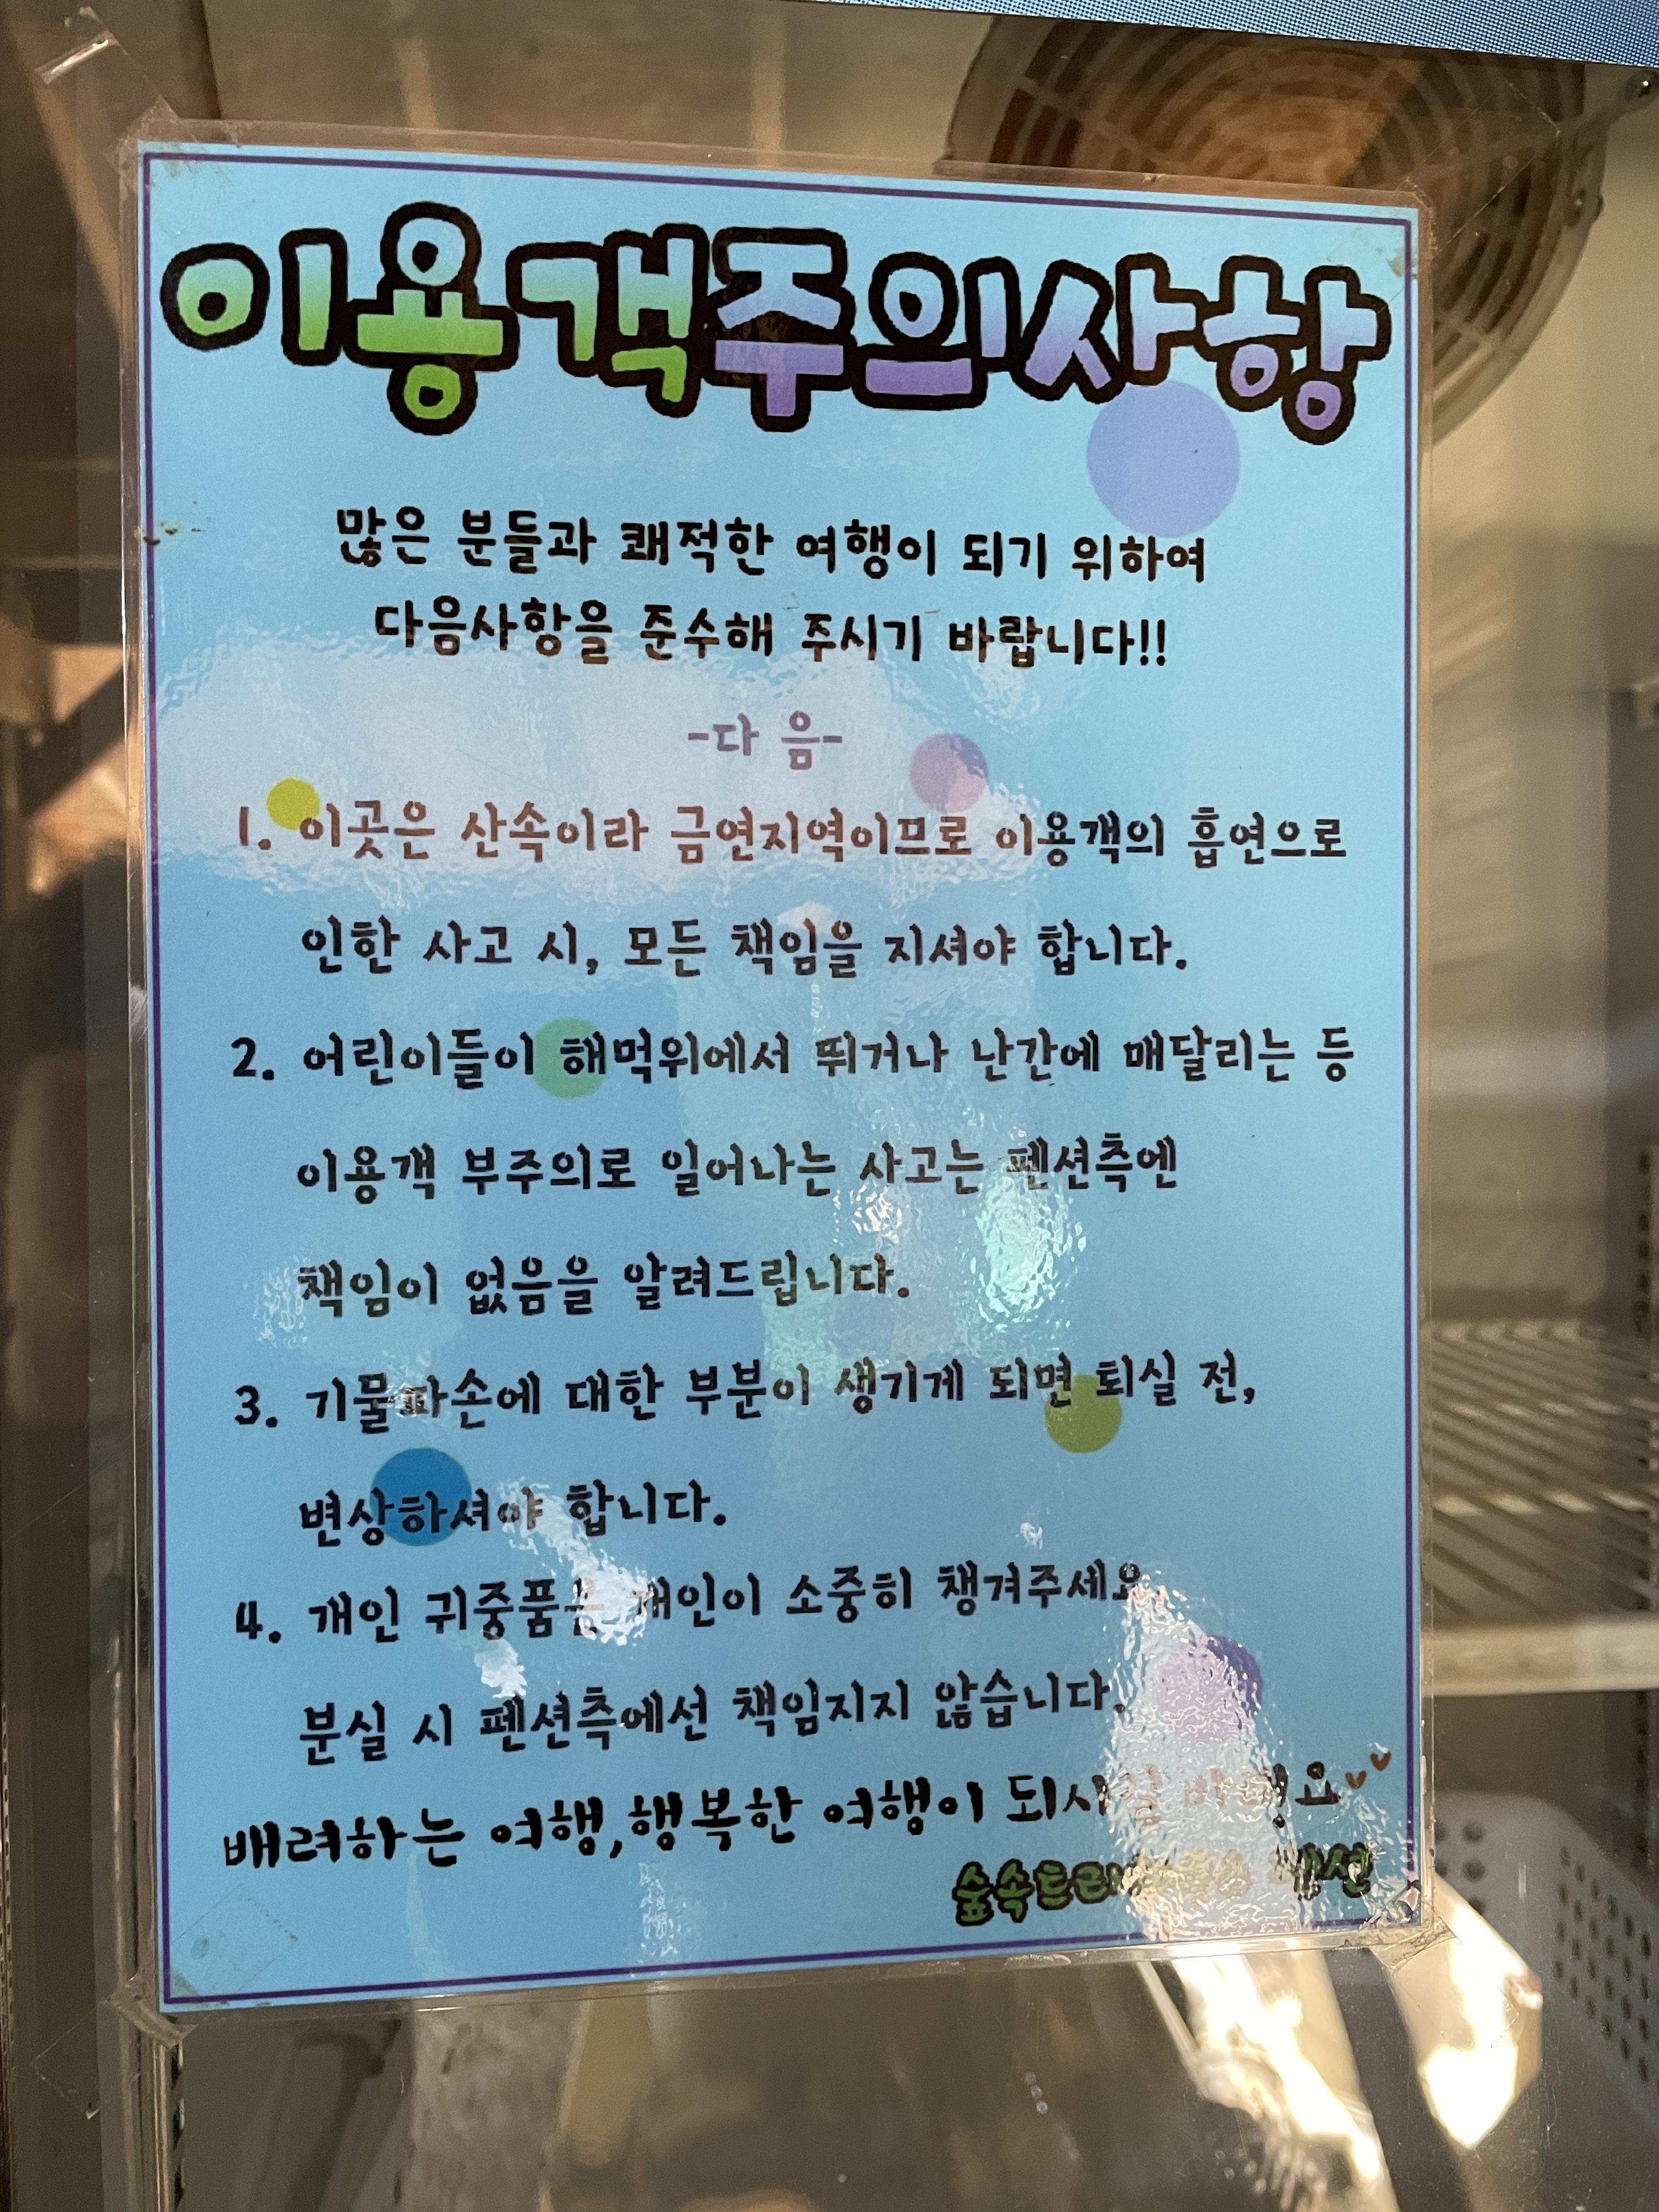 이용객주의사항
많은 분들과 쾌적한 여행이 되기 위하여
다음사항을 준수해 주시기 바랍니다!!
-다 음-
1. 이곳은 산속이라 금연지역이므로 이용객의 흡연으로
인한 사고 시, 모든 책임을 지셔야 합니다.
2. 어린이들이 해먹위에서 뛰거나 난간에 매달리는 등
이용객 부주의로 일어나는 사고는 펜션측엔
책임이 없음을 알려드립니다.
3. 기물파손에 대한 부분이 생기게 되면 퇴실 전,
변상하셔야 합니다.
4. 개인 귀중품은 개인이 소중히 챙겨주세요.
분실 시 펜션측에선 책임지지 않습니다.
배려하는 여행,행복한 여행이
펜션